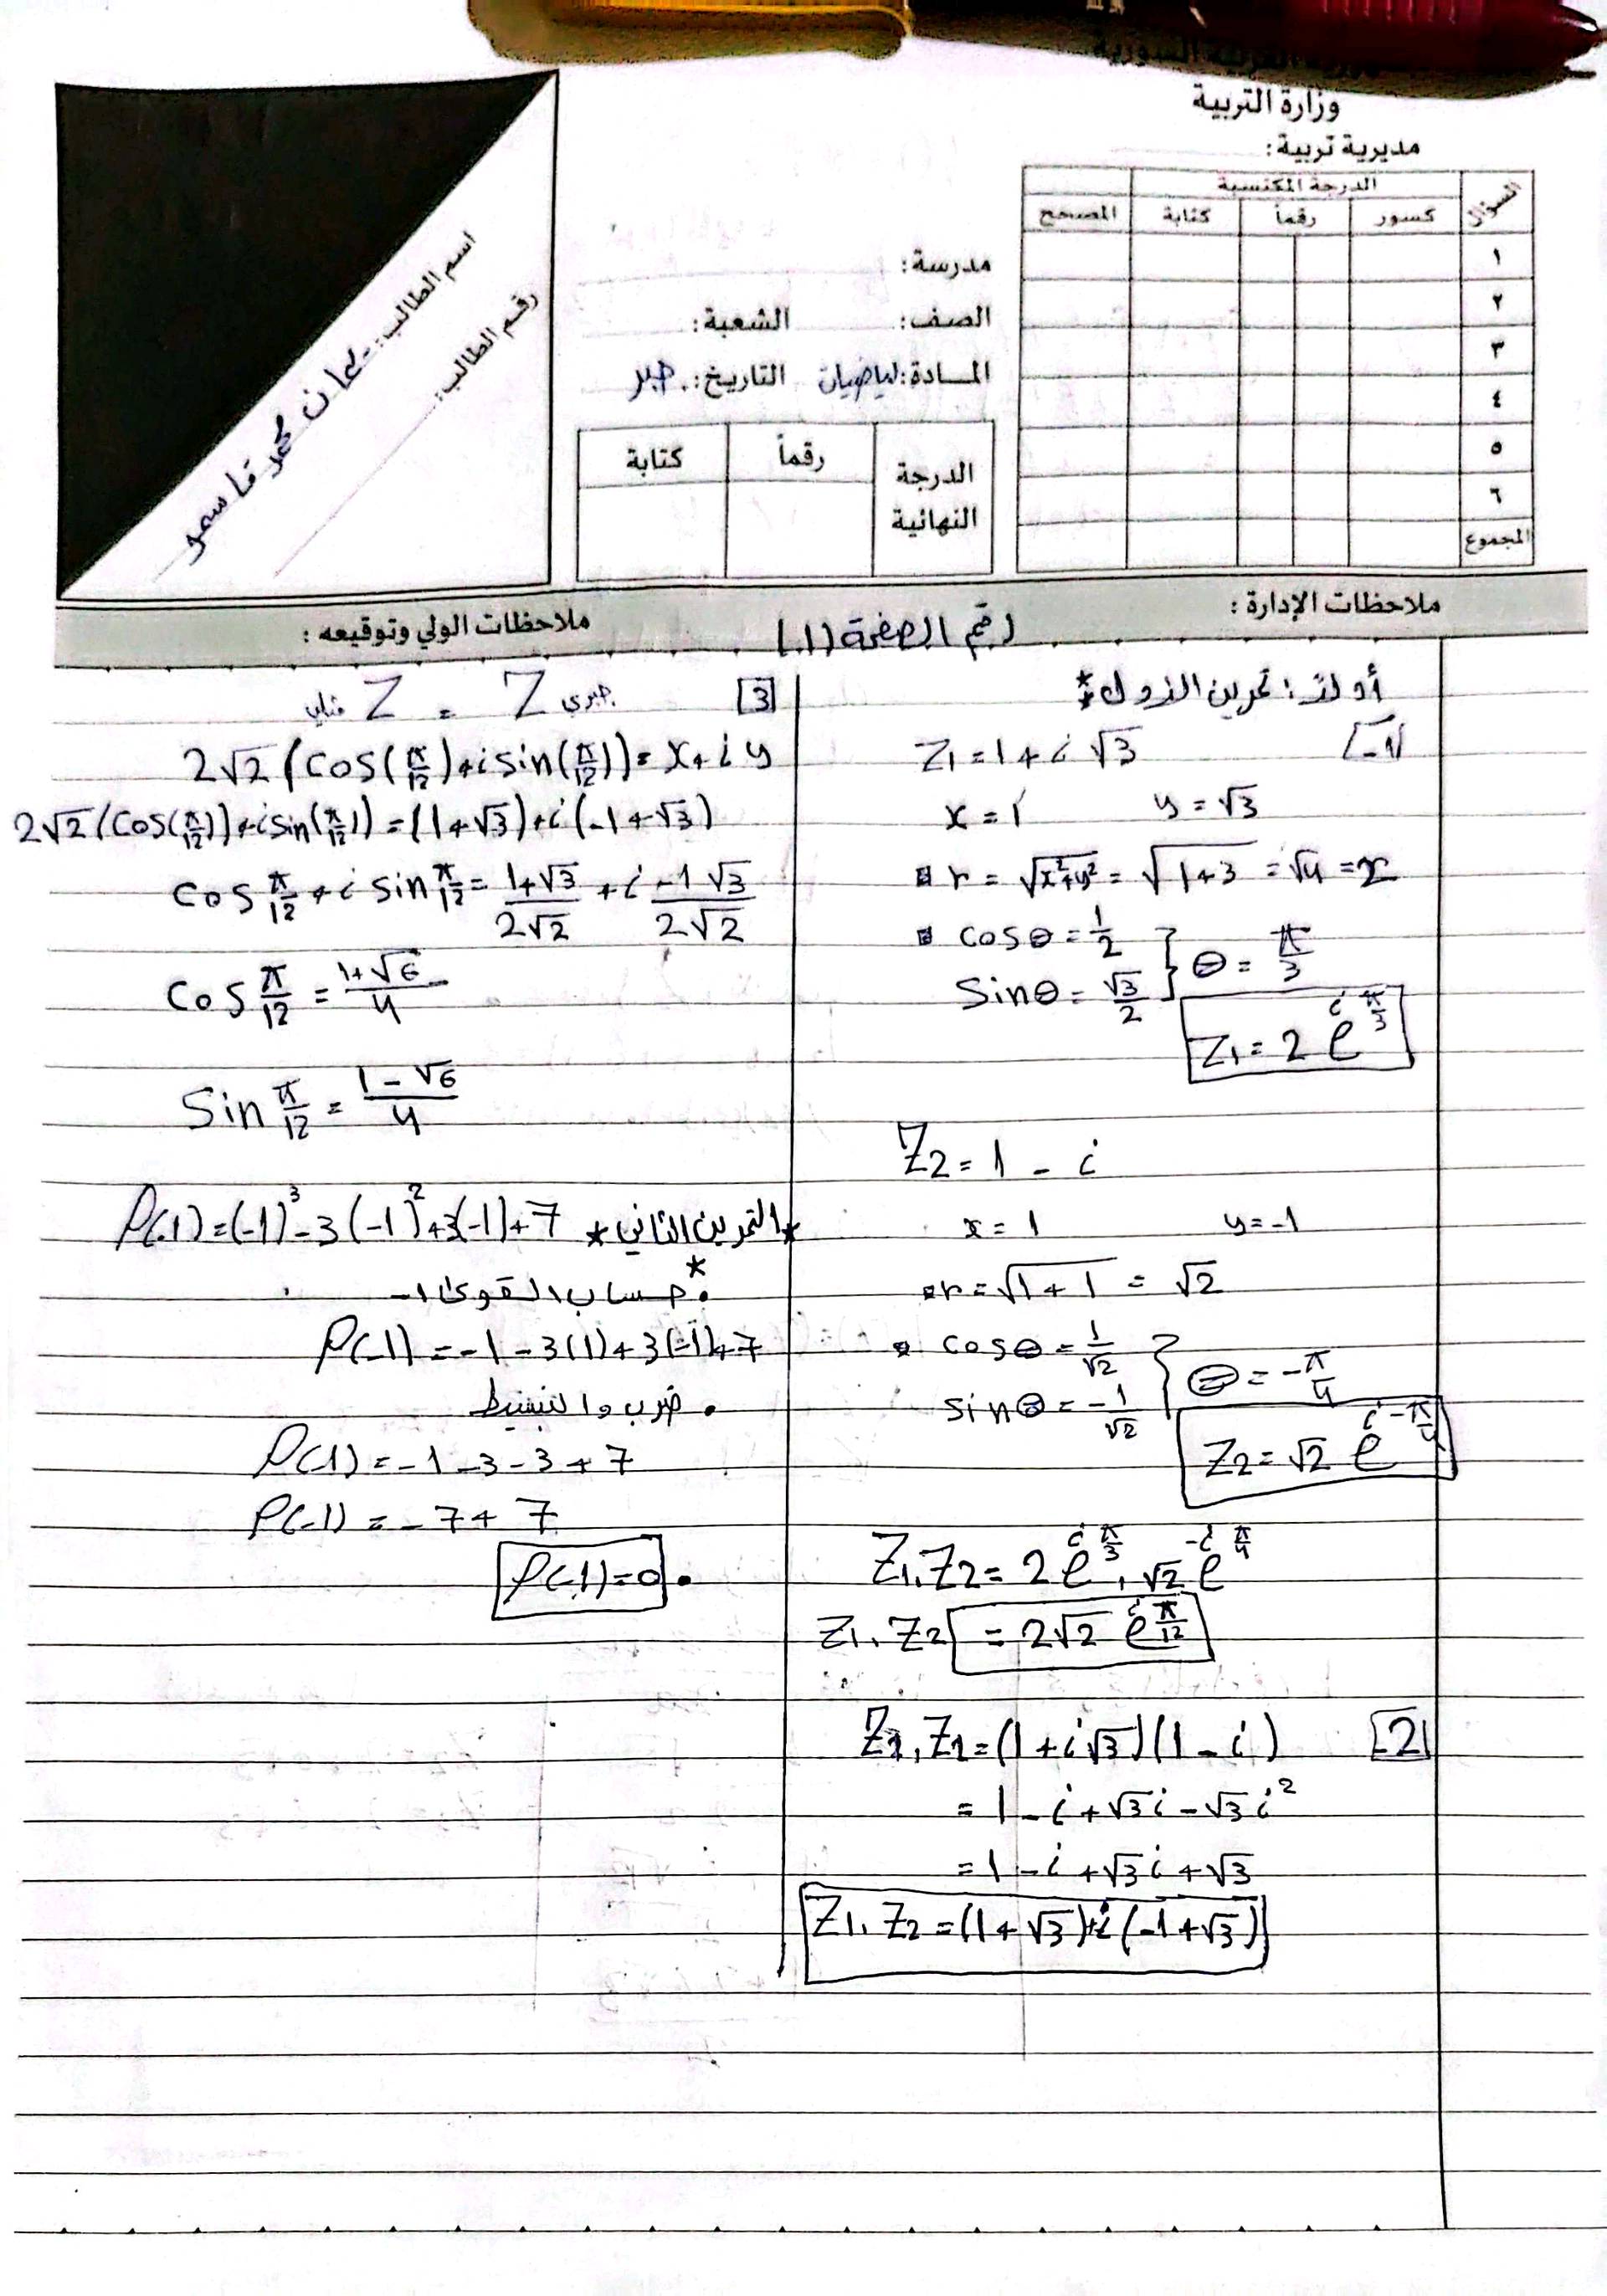 وزارة التربية
مديرية تربية:
السؤال
الدرجة المكتسبة
كسور
رقماً
كتابة
المصحح
١
٢
٣
٤
٥
٦
المجموع
مدرسة:
الصف: الشعبة:
المادة: التاريخ: جبر
الدرجة النهائية
رقماً
كتابة
اسم الطالب:
محمد قاسم
رقم الطالب:
ملاحظات الإدارة:
رقم الصفحة (1)
ملاحظات الولي وتوقيعه:
1
Z1 = 1 + i √3
x = 1 y = √3
r = √x²+y² = √1+3 = √4 = 2
cosθ = 1/2
sinθ = √3/2 } θ = π/3
Z1 = 2 e^{i π/3}
Z2 = 1 - i
x = 1 y = -1
r = √1+1 = √2
cosθ = 1/√2
sinθ = -1/√2 } θ = -π/4
Z2 = √2 e^{i -π/4}
Z1.Z2 = 2 e^{i π/3} . √2 e^{-i π/4}
Z1.Z2 = 2√2 e^{i π/12}
2
= (1 + i√3)(1 - i)
= 1 - i + √3 i - √3 i²
= 1 - i + √3 i + √3
Z1.Z2 = (1+√3)+i(-1+√3)
3
Z جبري = Z مثلثي
2√2 (cos(π/12)+i sin(π/12)) = x+iy
2√2 (cos(π/12)+i sin(π/12)) = (1+√3)+i(-1+√3)
cos π/12 + i sin π/12 = 1+√3/2√2 + i -1 √3/2√2
cos π/12 = 1+√6/4
sin π/12 = 1-√6/4
* التمرين الثاني *
P(-1) = (-1)³ - 3(-1)² + 3(-1) + 7
حساب القوى
P(-1) = -1 - 3(1) + 3(-1) + 7
ضرب والتبسيط
P(-1) = -1 - 3 - 3 + 7
P(-1) = -7 + 7
P(-1) = 0